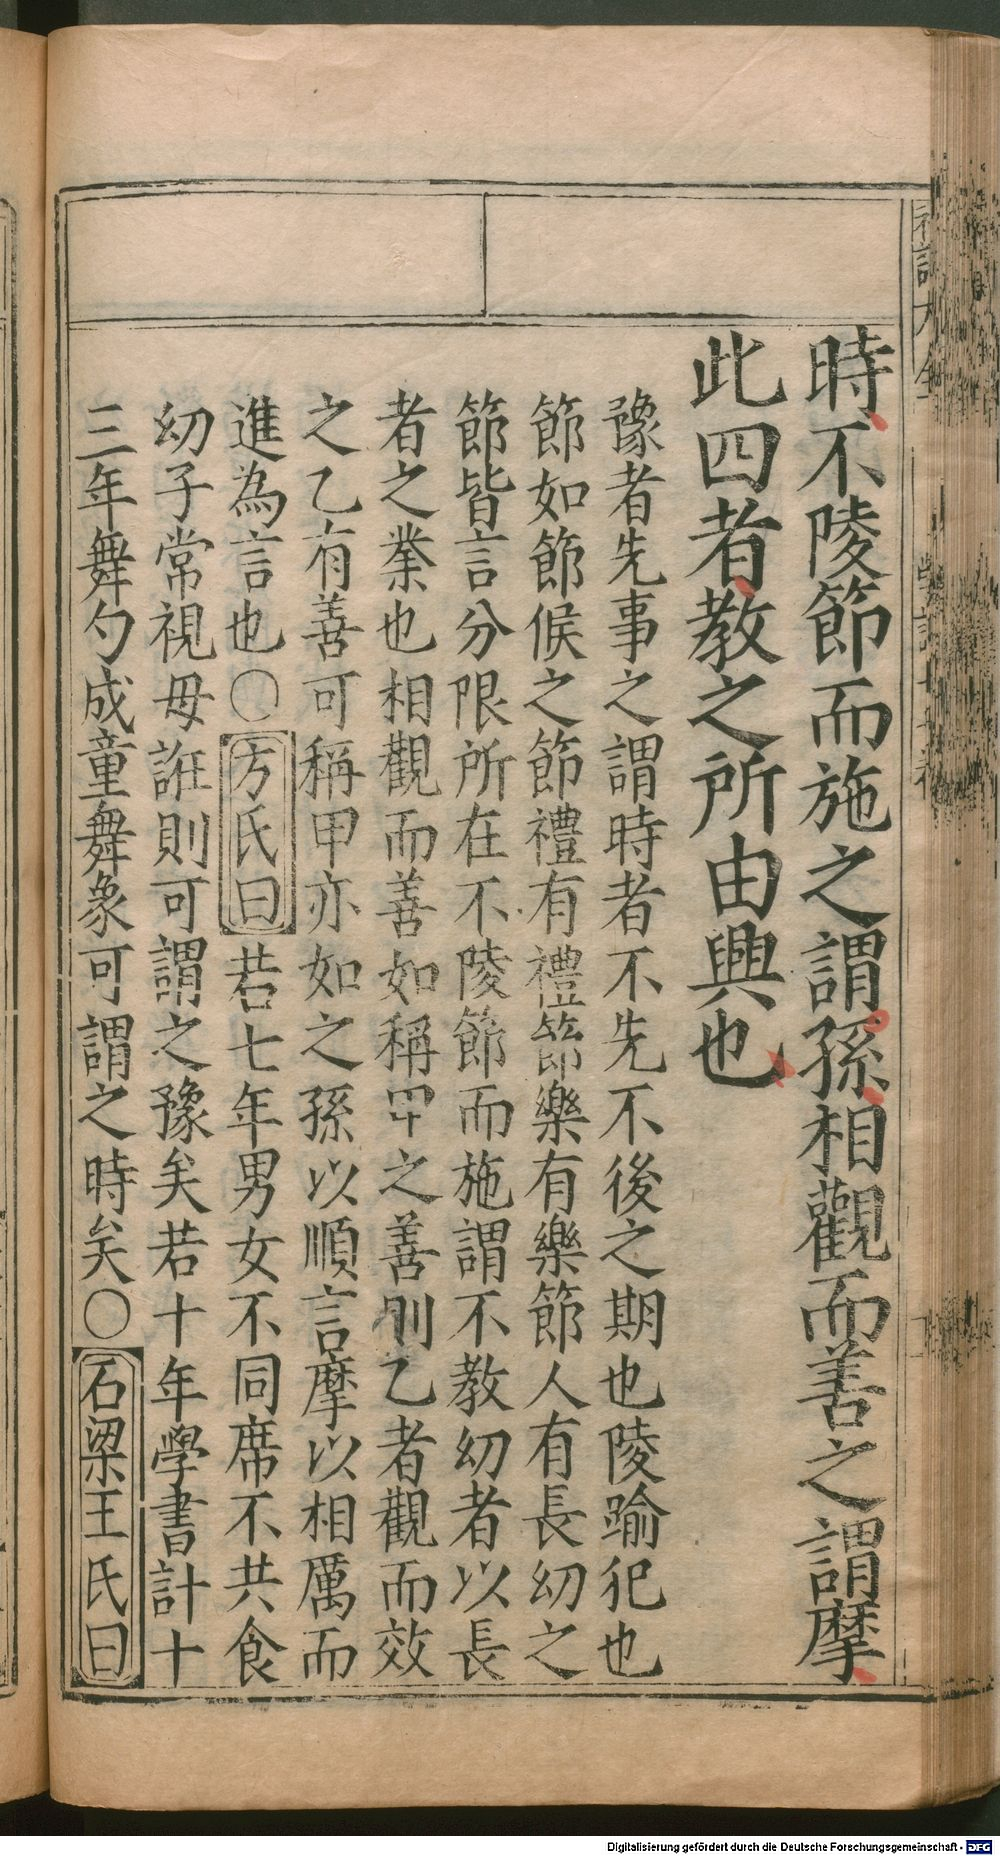 時不陵節而施之謂孫相觀而善之謂摩
此四者教之所由興也
豫者先事之謂時者不先不後之期也陵踰犯也
節如節候之節禮有禮節樂有樂節人有長幼之
節皆言分限所在不陵節而施謂不教幼者以長
者之業也相觀而善如稱甲之善則乙者觀而效
之乙有善可稱甲亦如之孫以順言摩以相厲而
進為言也○方氏曰若七年男女不同席不共食
幼子常視毋誑則可謂之豫矣若十年學書計十
三年舞勺成童舞象可謂之時矣○石梁王氏曰
Digitalisierung gefördert durch die Deutsche Forschungsgemeinschaft - DFG